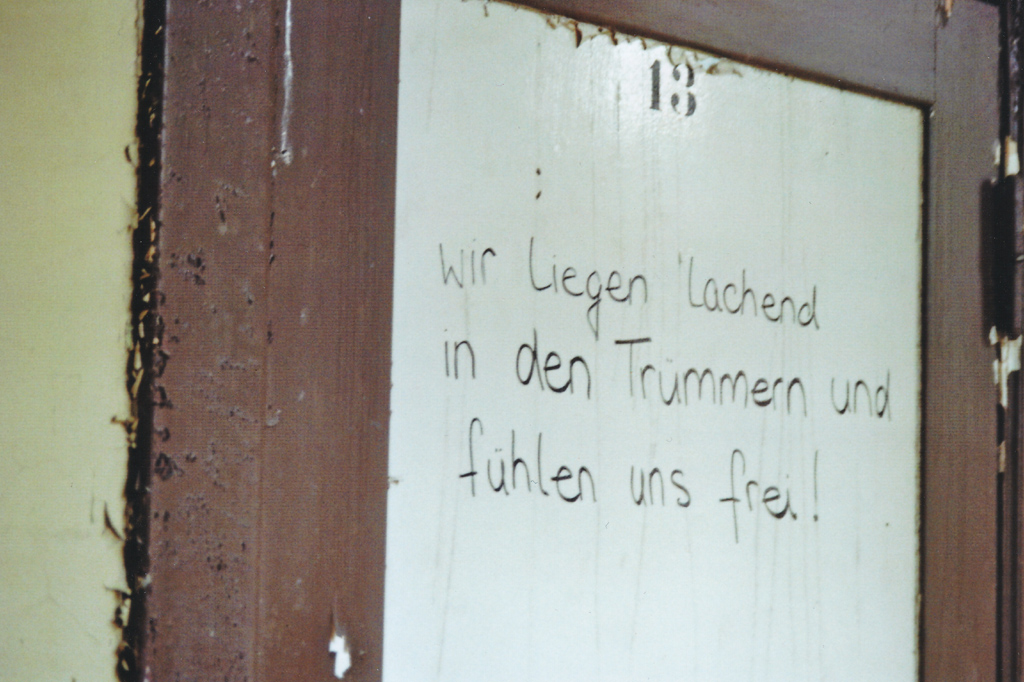 13
wir liegen lachend
in den Trümmern und
fühlen uns frei!